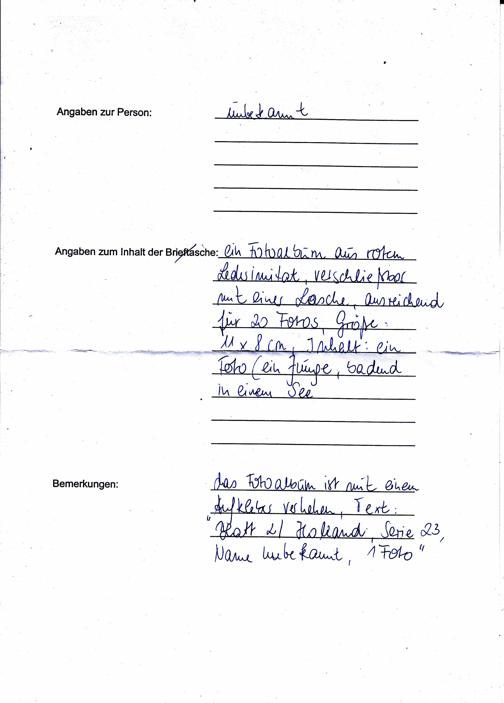 Angaben zur Person: unbekannt
Angaben zum Inhalt der Brieftasche: ein Fotoalbum aus rotem
Lederimitat, verschließbar
mit einer Lasche, ausreichend
für 20 Fotos, Größe:
11 x 8 cm, Inhalt: ein
Foto (ein Junge, badend
in einem See
Bemerkungen: das Fotoalbum ist mit einem
Aufkleber versehen, Text:
"Haft 2/ Holland, Serie 23,
Name unbekannt, 1 Foto"